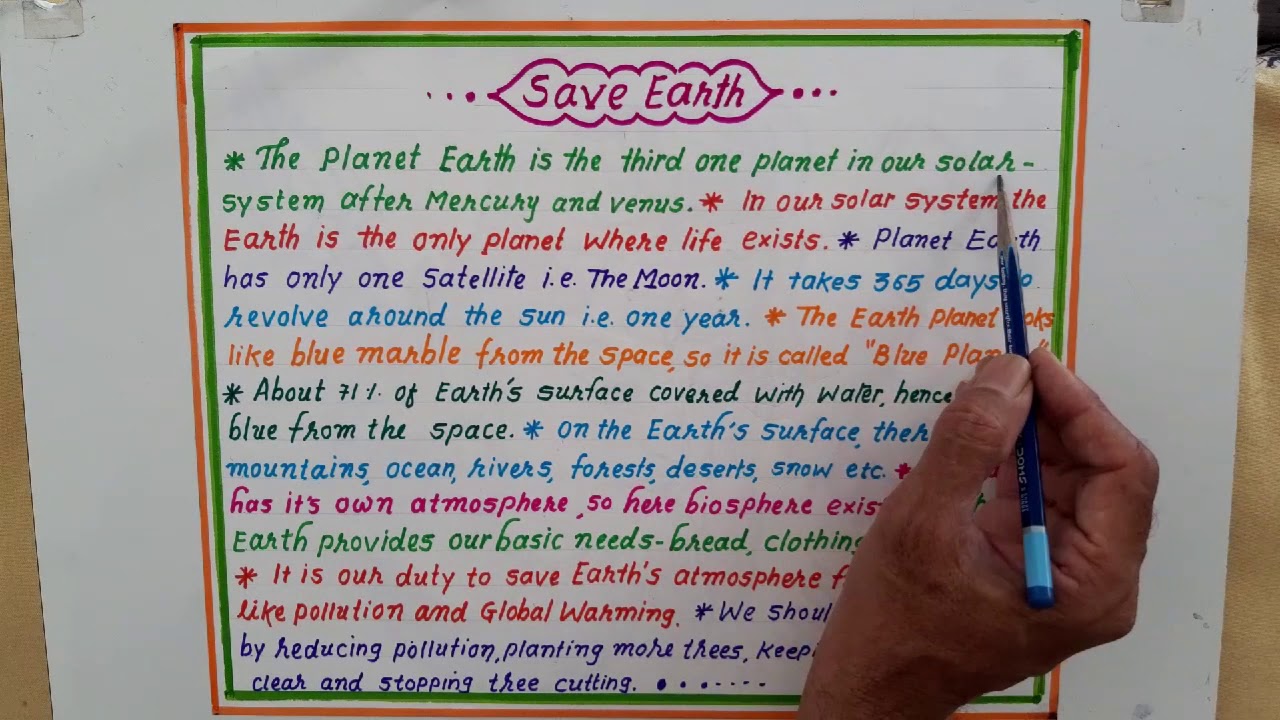 Save Earth
* The Planet Earth is the third one planet in our solar-
system after Mercury and venus. * In our solar system the
Earth is the only planet where life exists. * Planet Earth
has only one satellite i.e. The Moon. * It takes 365 days to
revolve around the sun i.e. one year. * The Earth planet
like blue marble from the space, so it is called "Blue Planet"
* About 71% of Earth's surface covered with water, hence
blue from the space. * On the Earth's surface, there
mountains, ocean, rivers, forests, deserts, snow etc. *
has it's own atmosphere, so here biosphere
Earth provides our basic needs - bread, clothing
* It is our duty to save Earth's atmosphere
like pollution and Global Warming. * We should
by reducing pollution, planting more trees,
clear and stopping tree cutting.